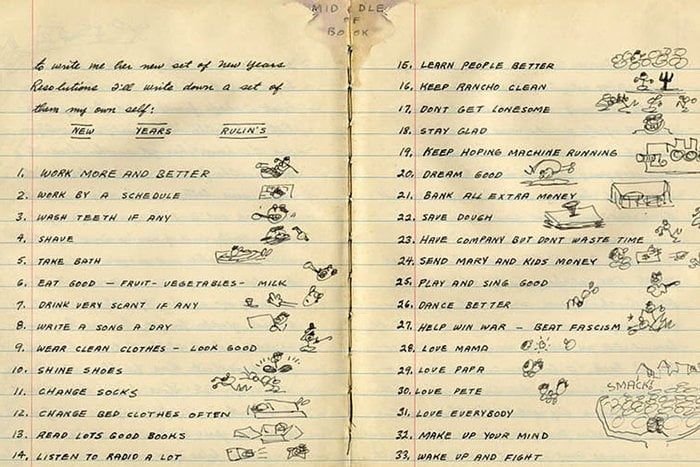 MIDDLE
OF
BOOK
to write me her new set of New Years
Resolutions I'll write down a set of
them my own self:
NEW YEARS RULIN'S
1. WORK MORE AND BETTER
2. WORK BY A SCHEDULE
3. WASH TEETH IF ANY
4. SHAVE
5. TAKE BATH
6. EAT GOOD — FRUIT — VEGETABLES — MILK
7. DRINK VERY SCANT IF ANY
8. WRITE A SONG A DAY
9. WEAR CLEAN CLOTHES — LOOK GOOD
10. SHINE SHOES
11. CHANGE SOCKS
12. CHANGE BED CLOTHES OFTEN
13. READ LOTS GOOD BOOKS
14. LISTEN TO RADIO A LOT
15. LEARN PEOPLE BETTER
16. KEEP RANCHO CLEAN
17. DONT GET LONESOME
18. STAY GLAD
19. KEEP HOPING MACHINE RUNNING
20. DREAM GOOD
21. BANK ALL EXTRA MONEY
22. SAVE DOUGH
23. HAVE COMPANY BUT DONT WASTE TIME
24. SEND MARY AND KIDS MONEY
25. PLAY AND SING GOOD
26. DANCE BETTER
27. HELP WIN WAR — BEAT FASCISM
28. LOVE MAMA
29. LOVE PAPA
30. LOVE PETE
SMACK!
31. LOVE EVERYBODY
32. MAKE UP YOUR MIND
33. WAKE UP AND FIGHT